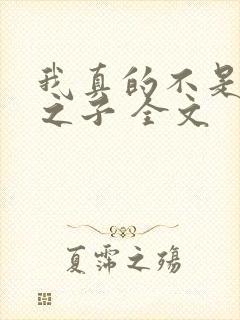 我真的不是
之子 全文
夏霈之殇